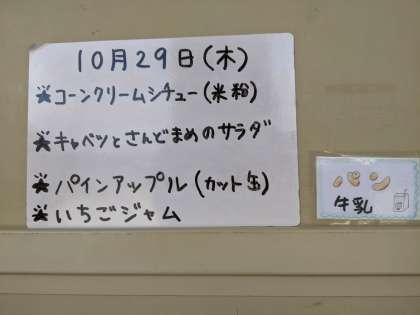 10月29日(木)
★コーンクリームシチュー(米粉)
★キャベツとさんどまめのサラダ
★パインアップル(カット缶)
★いちごジャム
パン
牛乳